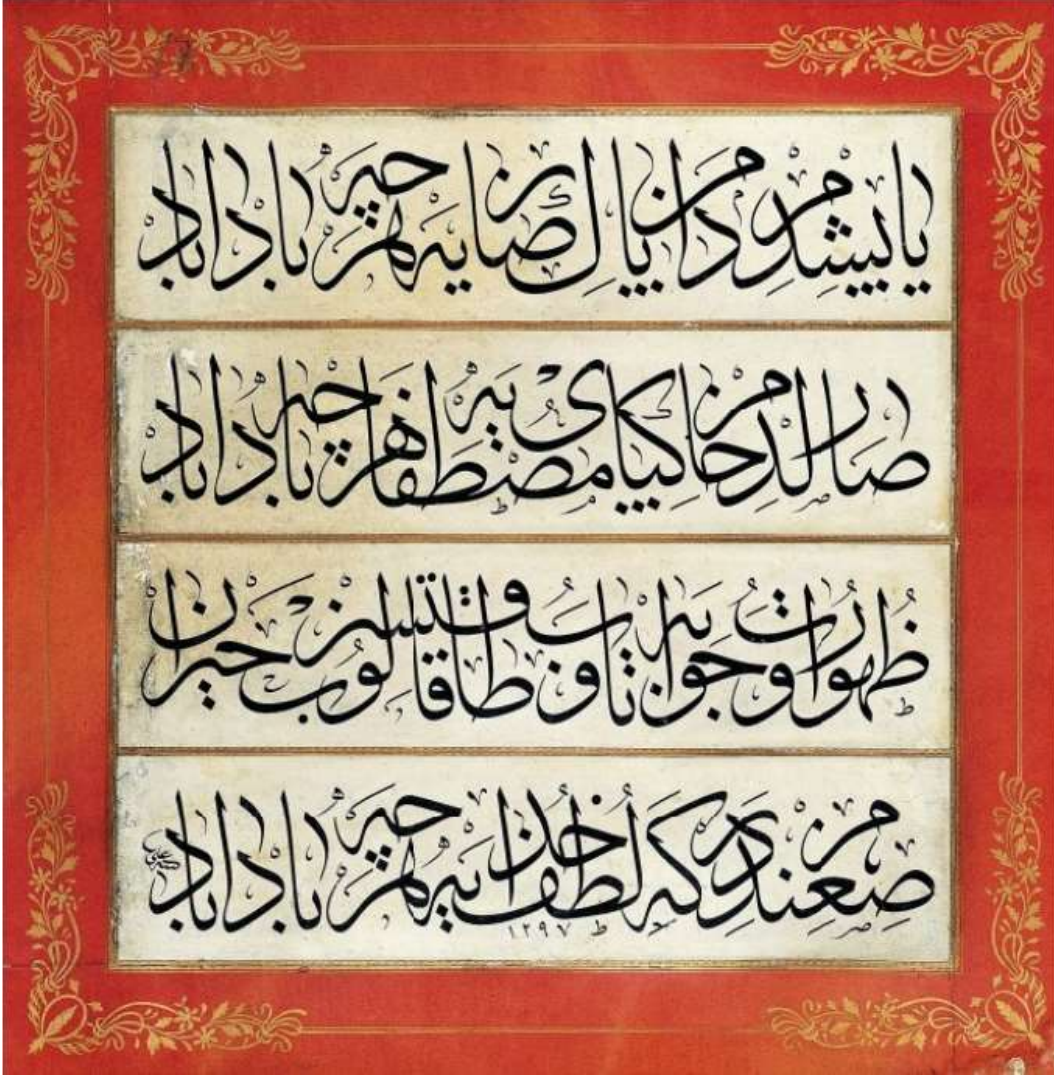 یاپیشدم دامن پاك رضایه هرچه باد اباد
صارلدم خاکپای مصطفایه هرچه باد اباد
ظهورات وجوابه تاب وطاقتسز قالوب حیران
صغندم درکه لطف خدایه هرچه باد اباد
١٢٩٧